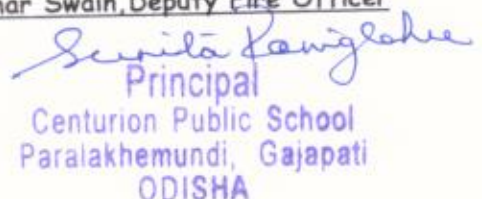 Swain, Deputy Fire Officer
Sunita
Principal
Centurion Public School
Paralakhemundi, Gajapati
ODISHA